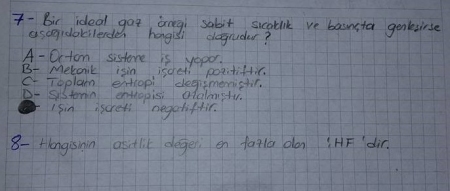 7- Bir ideal gaz örneği sabit sıcaklık ve basınçta genleşirse
aşağıdakilerden hangisi doğrudur?
A- Ortam sisteme iş yapar.
B- Mekanik işin işareti pozitiftir.
C- Toplam entropi değişmemiştir.
D- Sistemin entropisi azalmıştır.
İşin işareti negatiftir.
8- Hangisinin asitlik değeri en fazla olan 'HF 'dir.